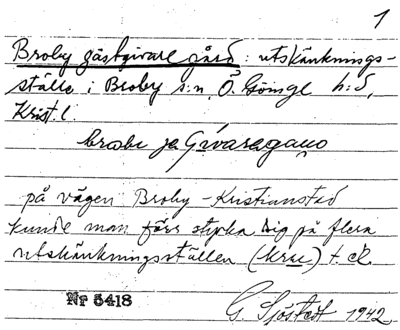 1
Broby gästgivare gård: utskänknings-
ställe i Broby s:n, Ö. Göinge h:d,
Krist. l.
brobi ja
på vägen Broby - Kristianstad
kunde man förr styrka sig på flera
utskänkningsställen (kru) t. ex.
Nr 5418
G. Sjöstedt 1942